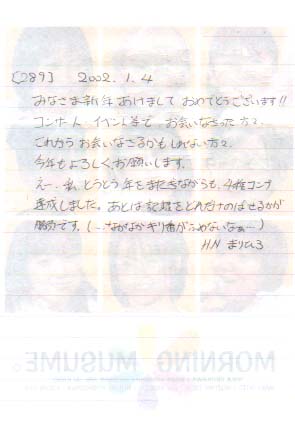 [289] 2002.1.4
みなさま新年あけましておめでとうございます!!
コンサート・イベント等でお会いなさった方々、
これからお会いなさるかもしれない方々、
今年もよろしくお願いします。
えー、私、とうとう年をまたぎながらも、4桁コンプ
達成しました。あとは記録をどれだけのばせるかが
勝負です。(…なかなかキリ番がふめないなぁ…)
HN まりひろ
MORNING MUSUME。